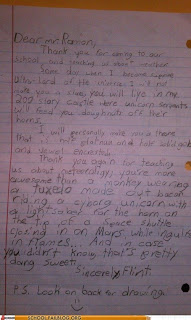 Dear mr. Ranson,
Thank you for coming to our
school and teaching us about weather
Some day when I become supreme
Ultra-Lord of the universe I will not
make you a slave, you will live in my
200 story castle where unicorn servants
will feed you doughnuts off their
horns.
I will personally make you a throne
that is half platnum and half solid gold
and jewel encrested.
Thank you again for teaching
us about meteorology, you're more
awesome than a monkey wearing
a tuxedo made out of bacon
riding a cyborg unicorn with
a light saber for the horn on
the tip of a space shuttle
closing in on Mars while ingulfed
in flames... And in case
you didn't know, that's pretty
dang sweet.
Sincerely, Flint
P.S. Look on back for drawing!
SCHOOL.FAILBLOG.ORG